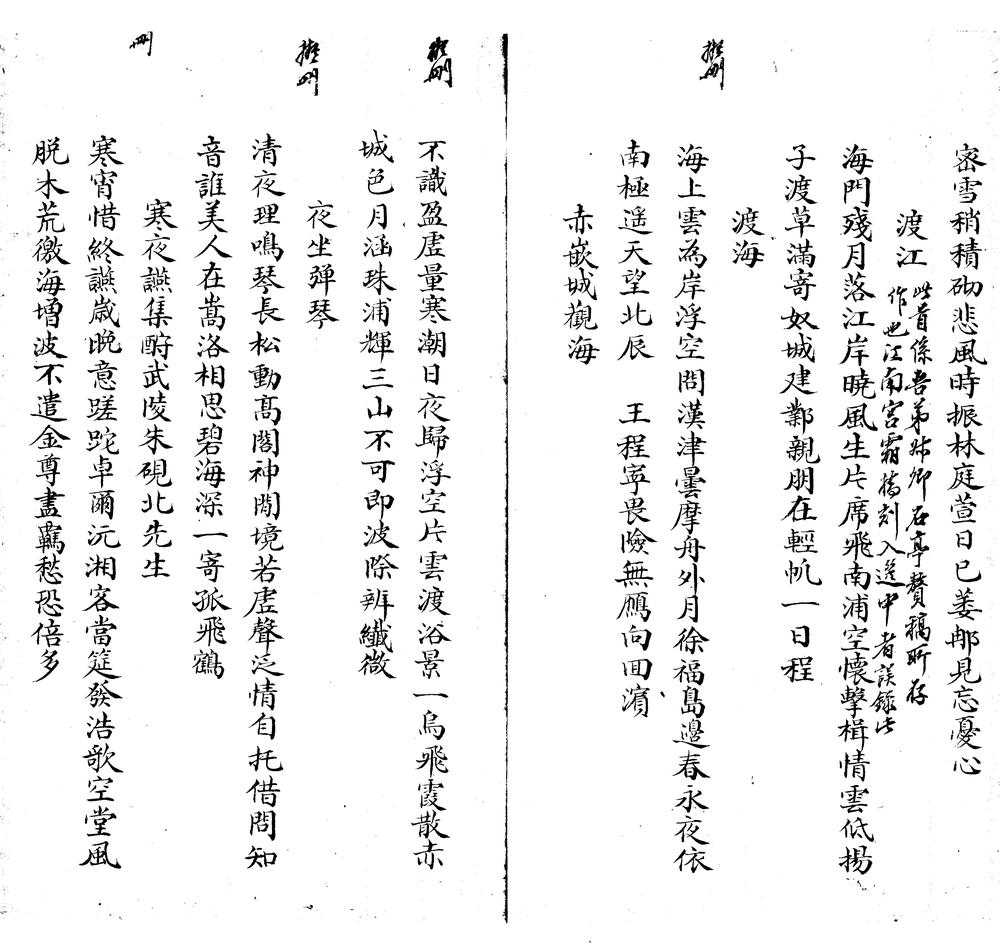 密雪稍積砌悲風時振林庭萱日已萎郍見忘憂心
渡江
此首係吾弟妹卿石亭賸稿所存
作也江南宮霜橋刻入選中者誤錄此
海門殘月落江岸曉風生片席飛南浦空懷擊楫情雲低揚
子渡草滿寄奴城建鄴親朋在輕帆一日程
擬刪
渡海
海上雲為岸浮空問漢津曇摩舟外月徐福島邊春永夜依
南極遥天望北辰　王程寧畏險無鴈向囬濵
赤嵌城觀海
擬刪
不識盈虛量寒潮日夜歸浮空片雲渡浴景一烏飛霞散赤
城色月涵珠浦輝三山不可即波際辨纖微
擬刪
夜坐彈琴
清夜理鳴琴長松動高閣神閒境若虛聲泛情自托借問知
音誰美人在嵩洛相思碧海深一寄孤飛鶴
刪
寒夜讌集酧武陵朱硯北先生
寒宵惜終讌歲晩意蹉跎卓爾沅湘客當筵發浩歌空堂風
脱木荒徼海增波不遣金尊盡羈愁恐倍多